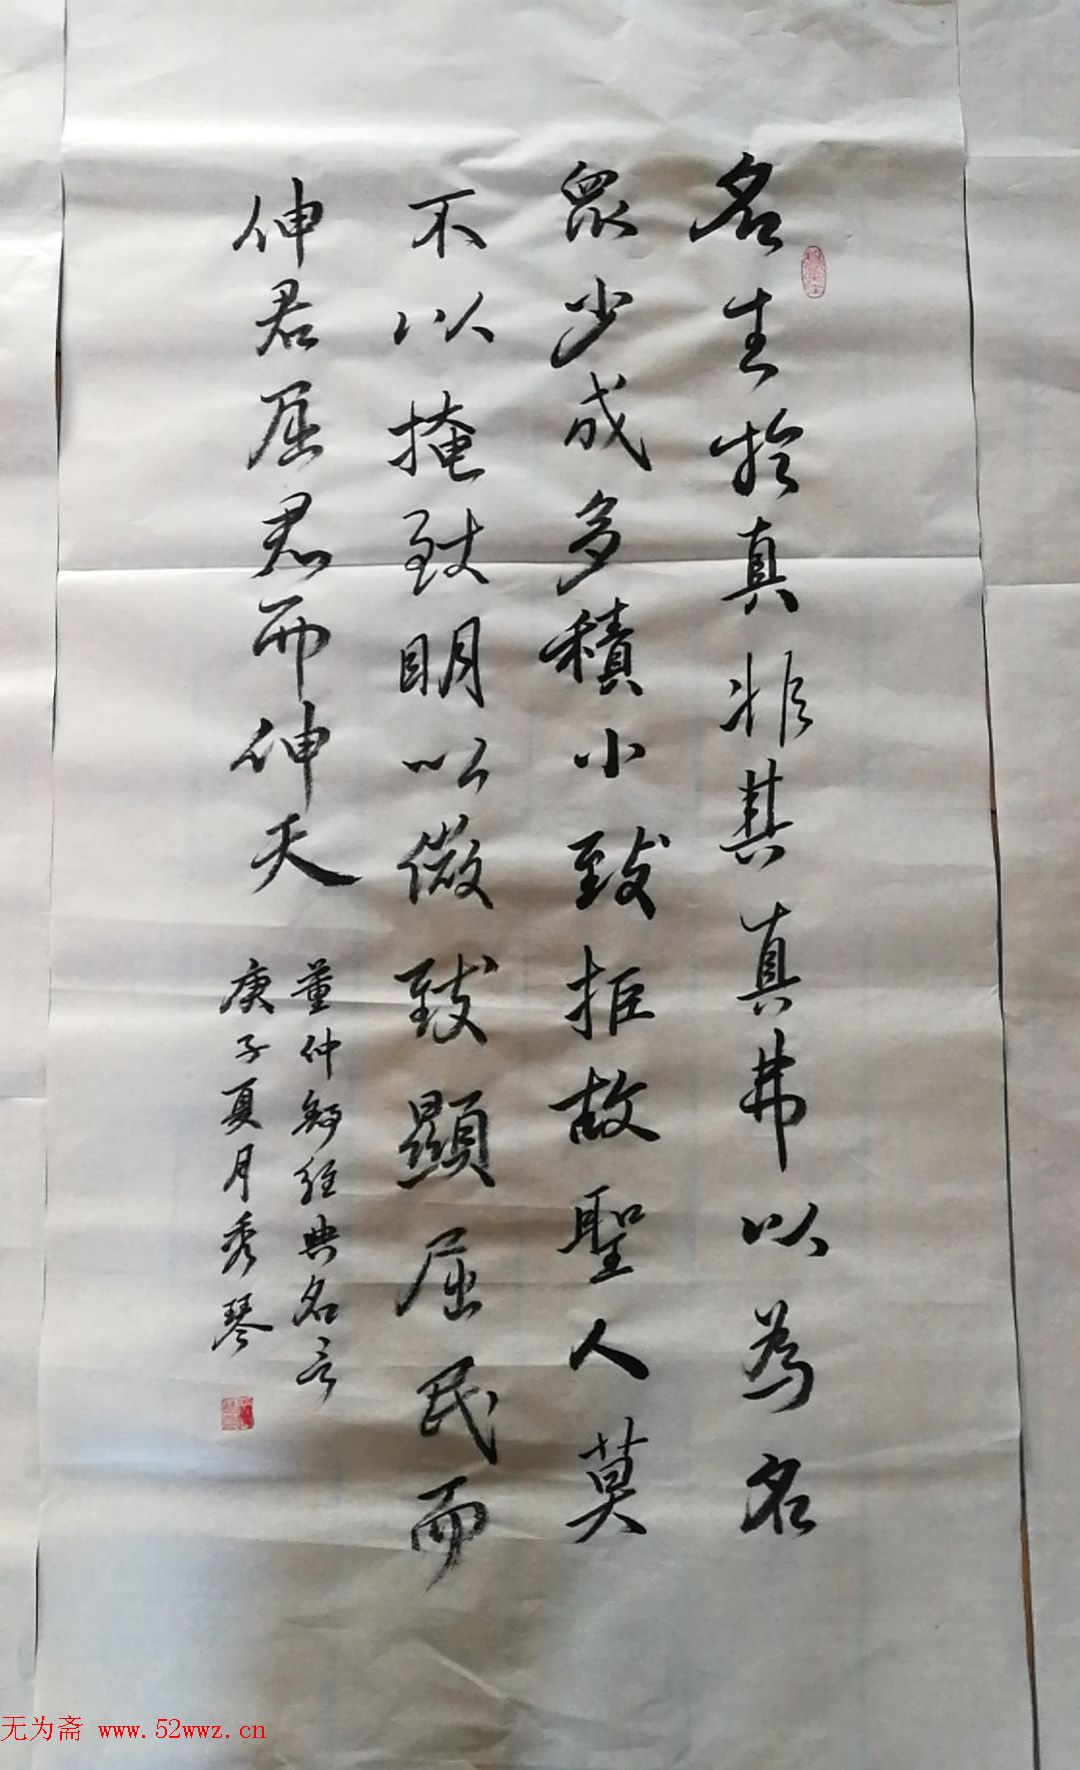 名生於真非其真弗以為名
眾少成多積小致拒故聖人莫
不以掩致明以微致顯屈民而
伸君屈君而伸天
董仲舒经典名言
庚子夏月秀琴
无为斋 www.52wwz.cn